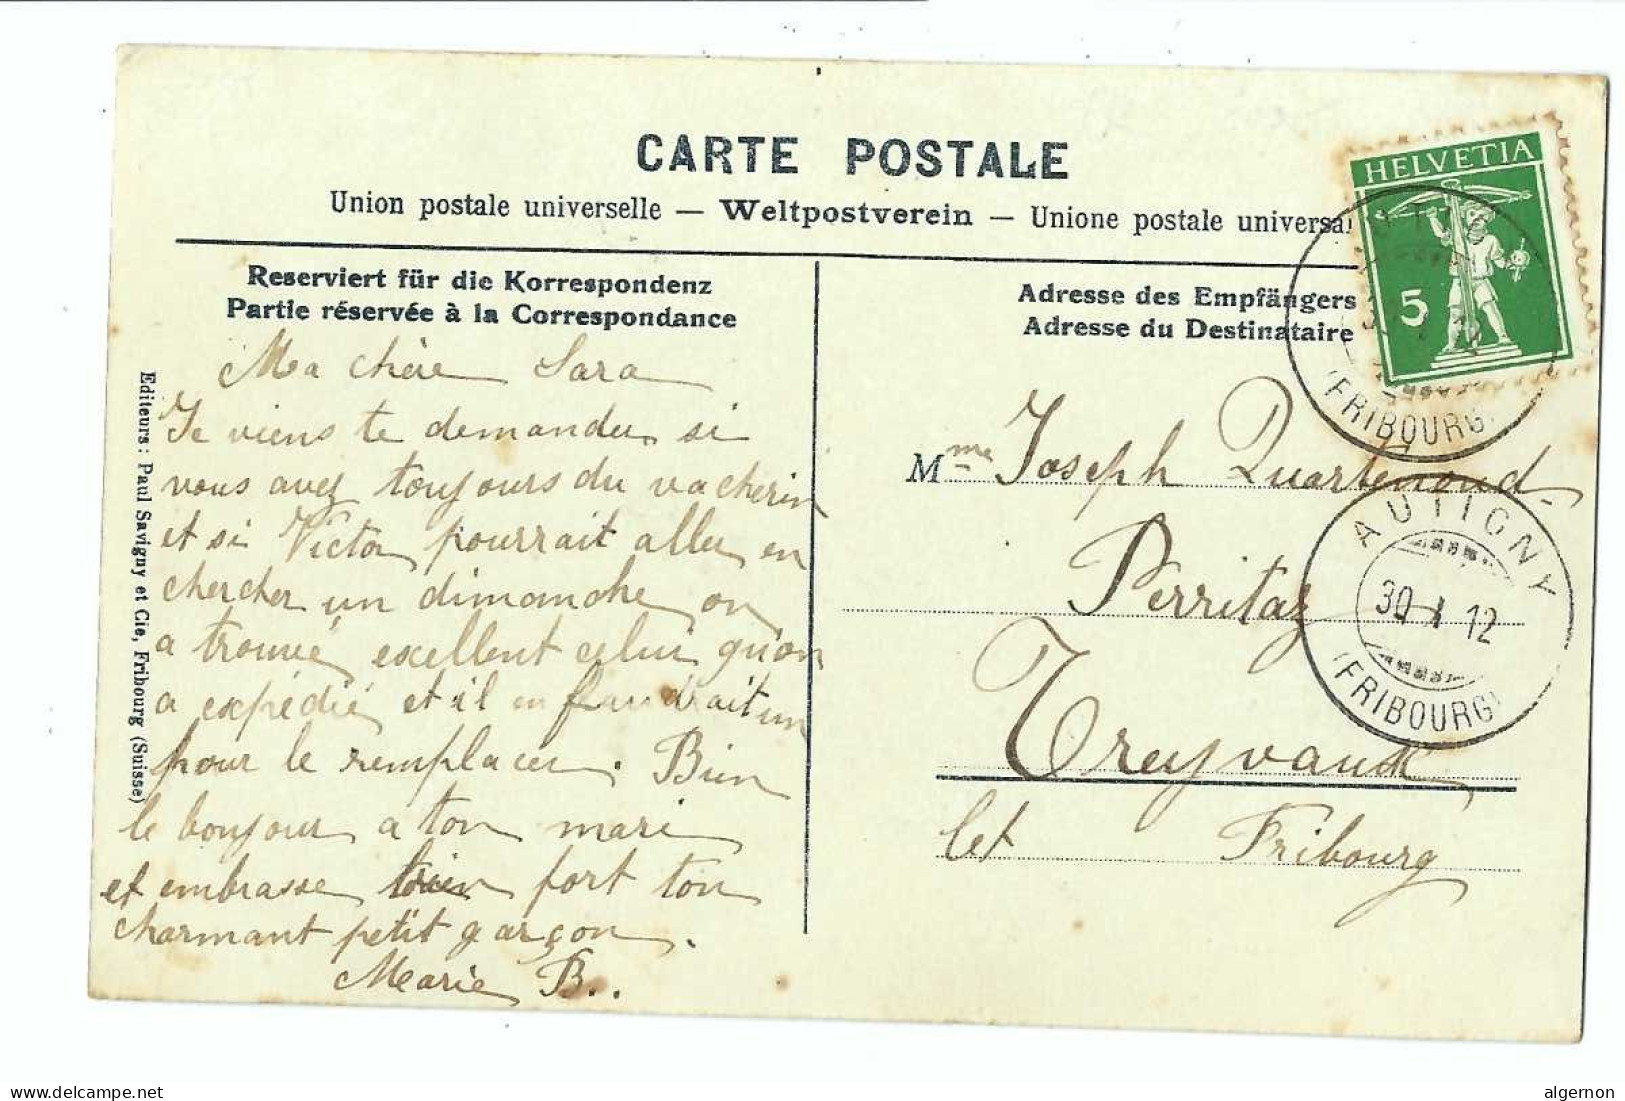 CARTE POSTALE
Union postale universelle — Weltpostverein — Unione postale universal
Reserviert für die Korrespondenz
Partie réservée à la Correspondance
Ma chère Sara
Je viens te demander si
vous avez toujours du vacherin
et si Victor pourrait aller en
chercher un dimanche on
a trouvé excellent celui qu'on
a expédié et il en faudrait un
pour le remplacer. Bien
le bonjour a ton mari
et embrasse bien fort ton
charmant petit garçon.
Marie B..
Editeurs: Paul Savigny et Cie, Fribourg (Suisse)
Adresse des Empfängers
Adresse du Destinataire
Mme Joseph Quartenoud-
Perritaz
Treyvaux
Ct Fribourg
HELVETIA
5
(FRIBOURG)
AUTIGNY
30.I.12
(FRIBOURG)
www.delcampe.net
algernon